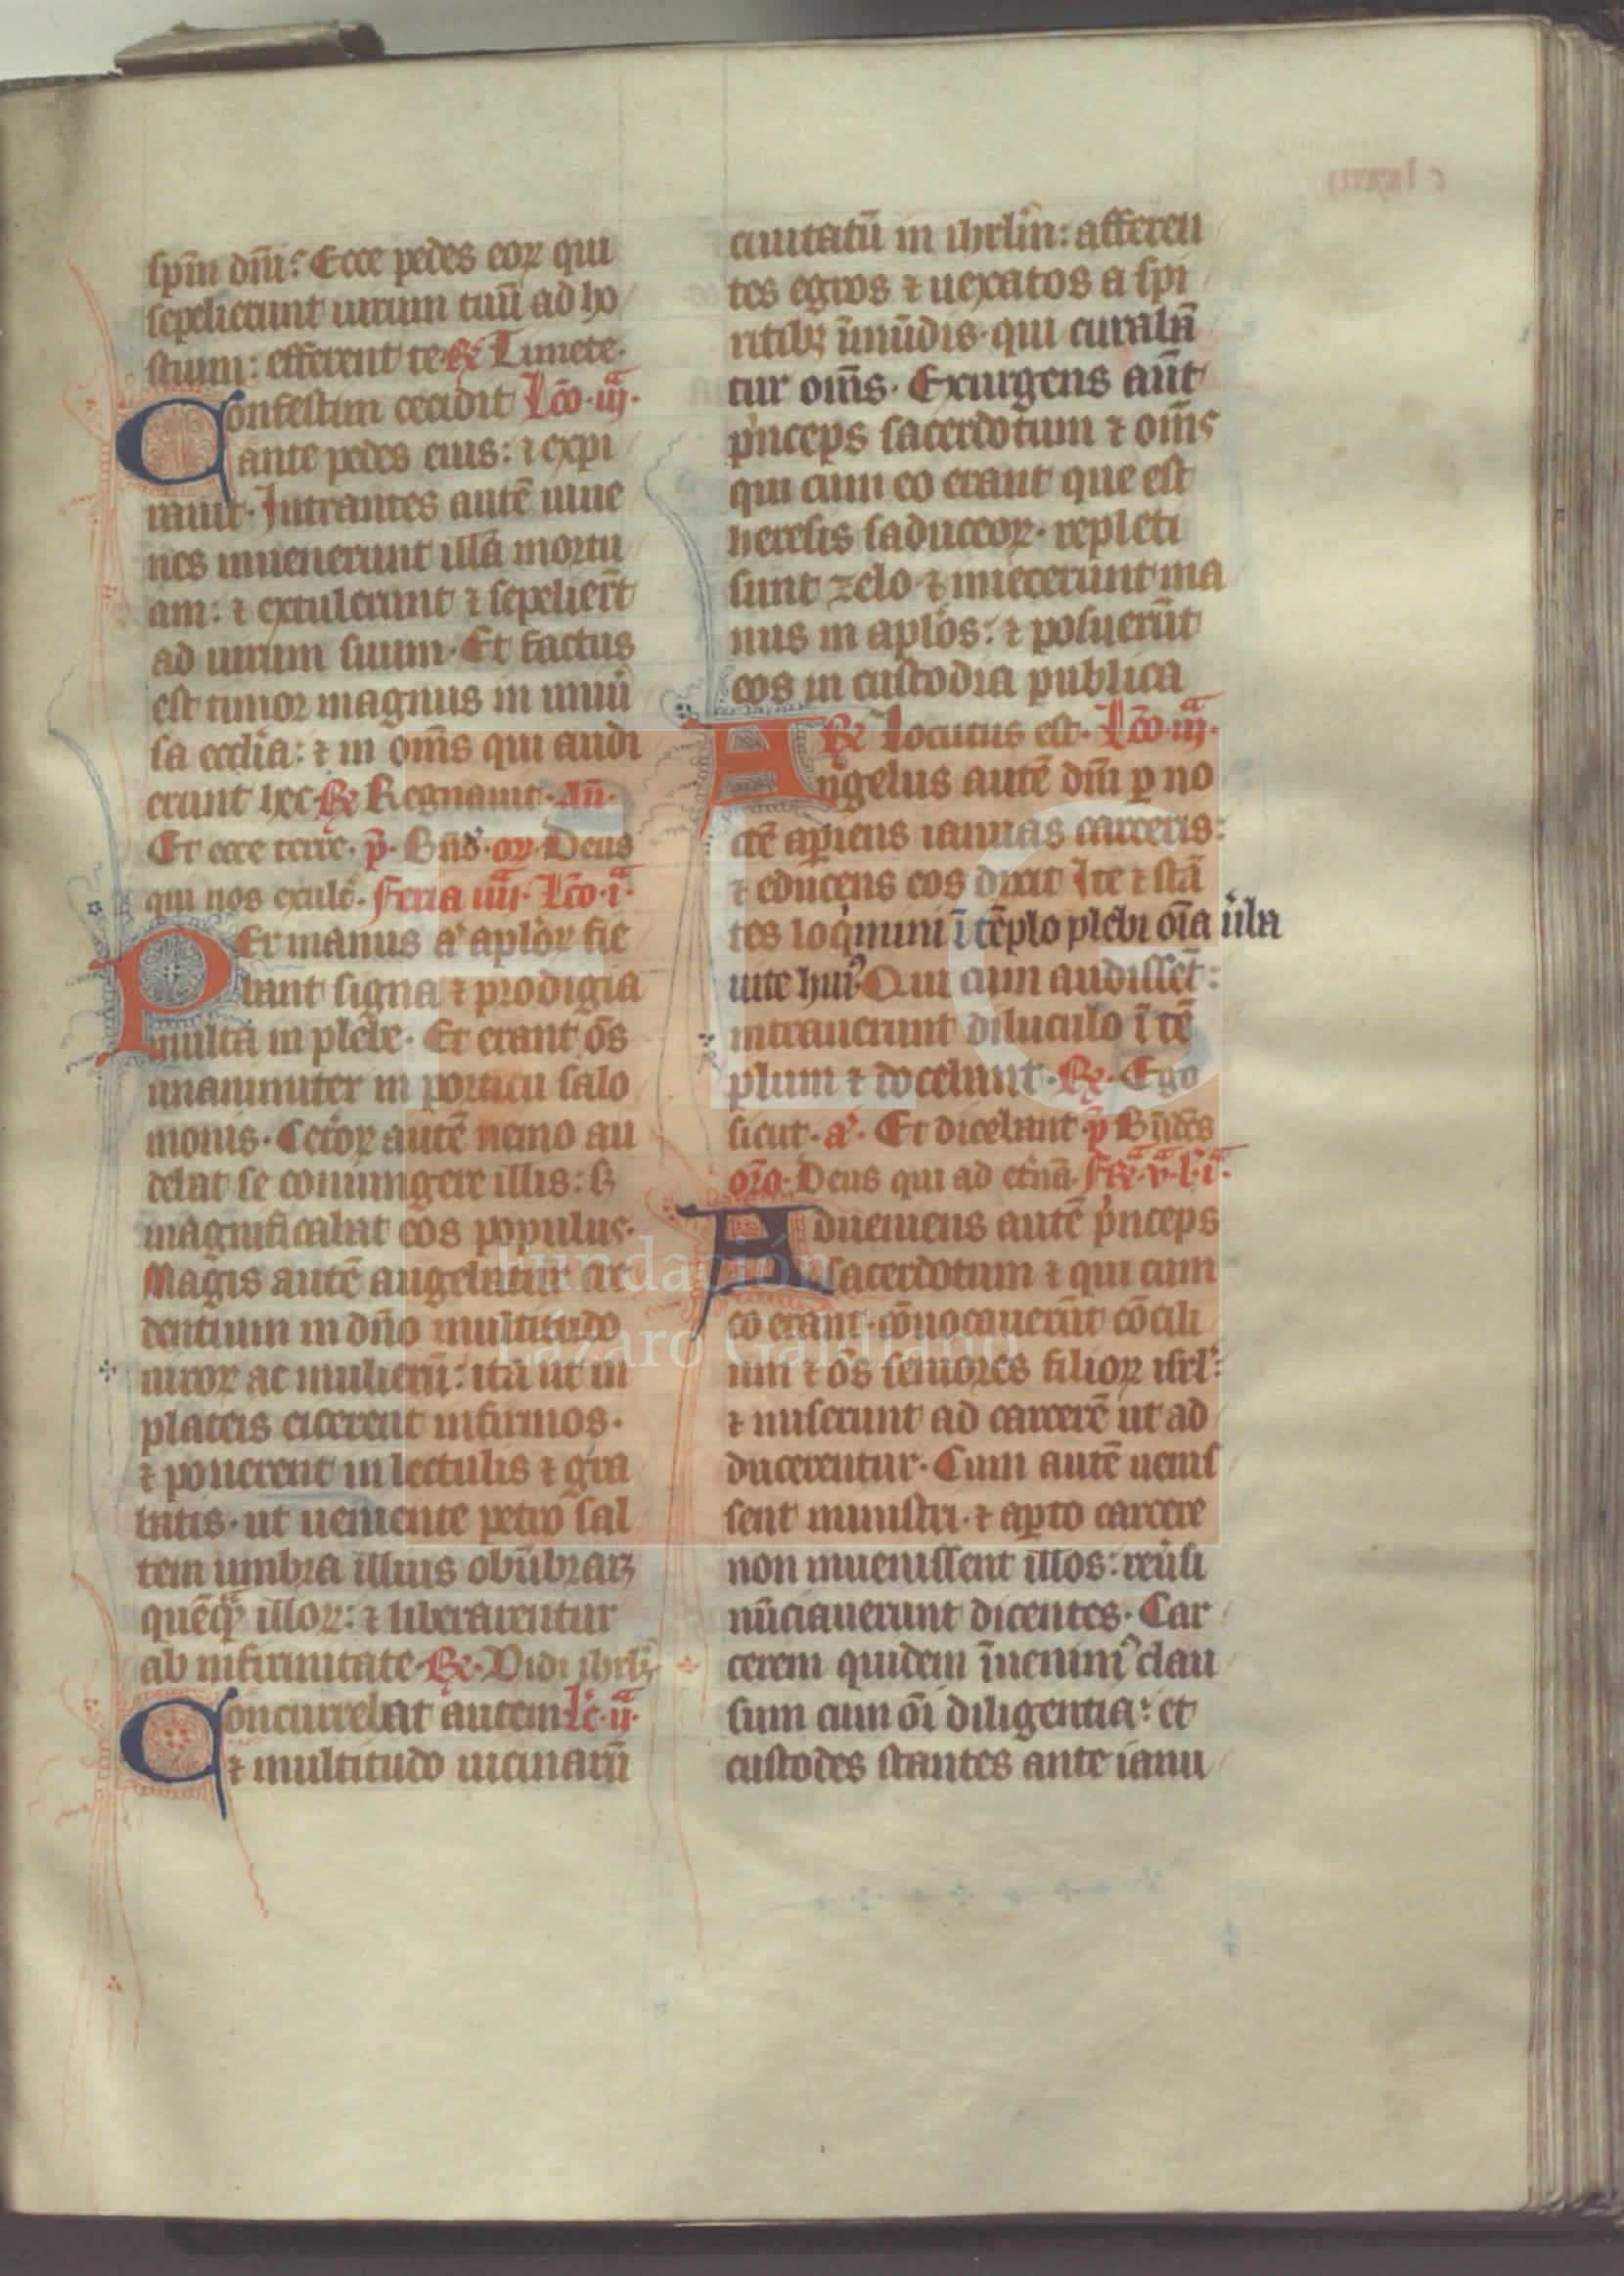 sp̄m dn̄i: Ecce pedes eoꝝ qui
sepelierunt uirum tuū ad ho
stium: efferent te. ℟ Timete.
Confestim cecidit Lc̄o .iij.
ante pedes eius: ⁊ expi
rauit. Intrantes autē iuue
nes inuenerunt illā mortu
am: ⁊ extulerunt ⁊ sepelier̄t
ad uirum suum. Et factus
est timor magnus in uniū
sa eccl̄ia: ⁊ in om̄s qui audi
erunt hec. ℟ Regnauit. An̄.
Et ecce terre. p̄. Bn̄s. or̄. Deus
qui nos exult̄. Feria iiij. Lc̄o .i.
Per manus a᷒ apl̄oꝝ fie
bant signa ⁊ prodigia
multa in plebe. Et erant ōs
unanimiter in porticu salo
monis. Ceteroꝝ autē nemo au
debat se coniungere illis: sꝫ
magnificabat eos populus.
Magis autē augebatur cre
dentium in dn̄o multitudo
uiroꝝ ac mulierū: ita ut in
plateis eicerent infirmos.
⁊ ponerent in lectulis ⁊ gra
batis. ut ueniente petro sal
tem umbra illius obūbrarꝫ
quēqꝫ illoꝝ: ⁊ liberarentur
ab infirmitate. ℟. Vidi ihrl̄m
Concurrebat autem Lc̄. ij.
⁊ multitudo uicinarū
ciuitatū in ihrl̄m: afferen
tes egros ⁊ uexatos a spi
ritibꝫ īmūdis. qui curabā
tur om̄s. Exurgens aūt
p͛nceps sacerdotum ⁊ om̄s
qui cum eo erant que est
heresis saduceoꝝ. repleti
sunt zelo. ⁊ iniecerunt ma
nus in apl̄os: ⁊ posuerūt
eos in custodia publica
℟ Locutus est. Lc̄o .iij.
Angelus autē dn̄i ꝑ no
ctē aꝑiens ianuas carceris:
⁊ educens eos dixit Ite ⁊ stā
tes loq̇mini ī tēplo plebi oīa ūba
uite huiꝰ Qui cum audissēt:
intrauerunt diluculo ī tē
plum ⁊ docebant. ℟. Ego
sicut. a᷒. Et dicebant. p̄ Bn̄dc̄s
or̄o. Deus qui ad et̄nā. Fr̄. v. l. i.
Adueniens autē p͛nceps
sacerdotum ⁊ qui cum
eo erant. cōuocauerūt cōcili
um ⁊ ōs seniores filioꝝ isrl̄:
⁊ miserunt ad carcerē ut ad
ducerentur. Cum autē uenis
sent ministri. ⁊ aꝑto carcere
non inuenissent illos: reūsi
nūciauerunt dicentes. Car
cerem quidem īuenimꝰ clau
sum cum oī diligentia: et
custodes stantes ante ianu
Fundación
Lázaro Galdiano